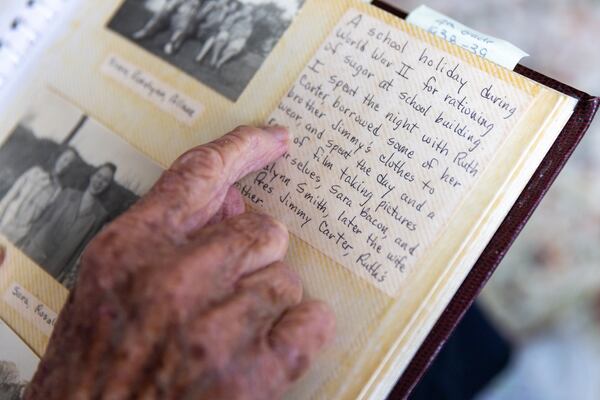 Rosalynn,
Sara, Rosal
A school holiday during
World War II for rationing
of sugar at school building.
I spent the night with Ruth
Carter, borrowed some of her
brother Jimmy's clothes to
wear and spent the day, and a
of film taking pictures
selves, Sara Bacon, and
alynn Smith, later the wife
Pres Jimmy Carter, Ruth's
other